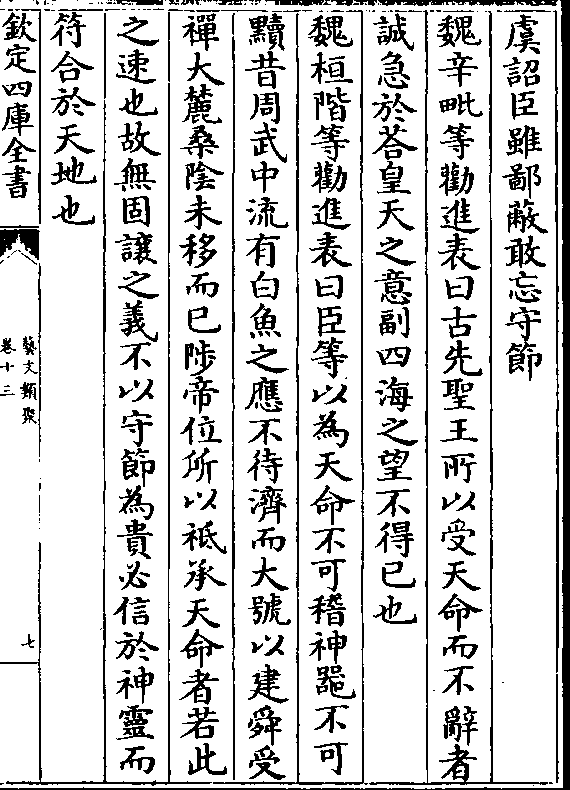 虞詔臣雖鄙蔽敢忘守節
魏辛毗等勸進表曰古先聖王所以受天命而不辭者
誠急於荅皇天之意副四海之望不得已也
魏桓階等勸進表曰臣等以為天命不可稽神噐不可
黷昔周武中流有白魚之應不待濟而大號以建舜受
禪大麓桑陰未移而已陟帝位所以祗承天命者若此
之速也故無固讓之義不以守節為貴必信於神靈而
符合於天地也
欽定四庫全書
藝文類聚
卷十三
七